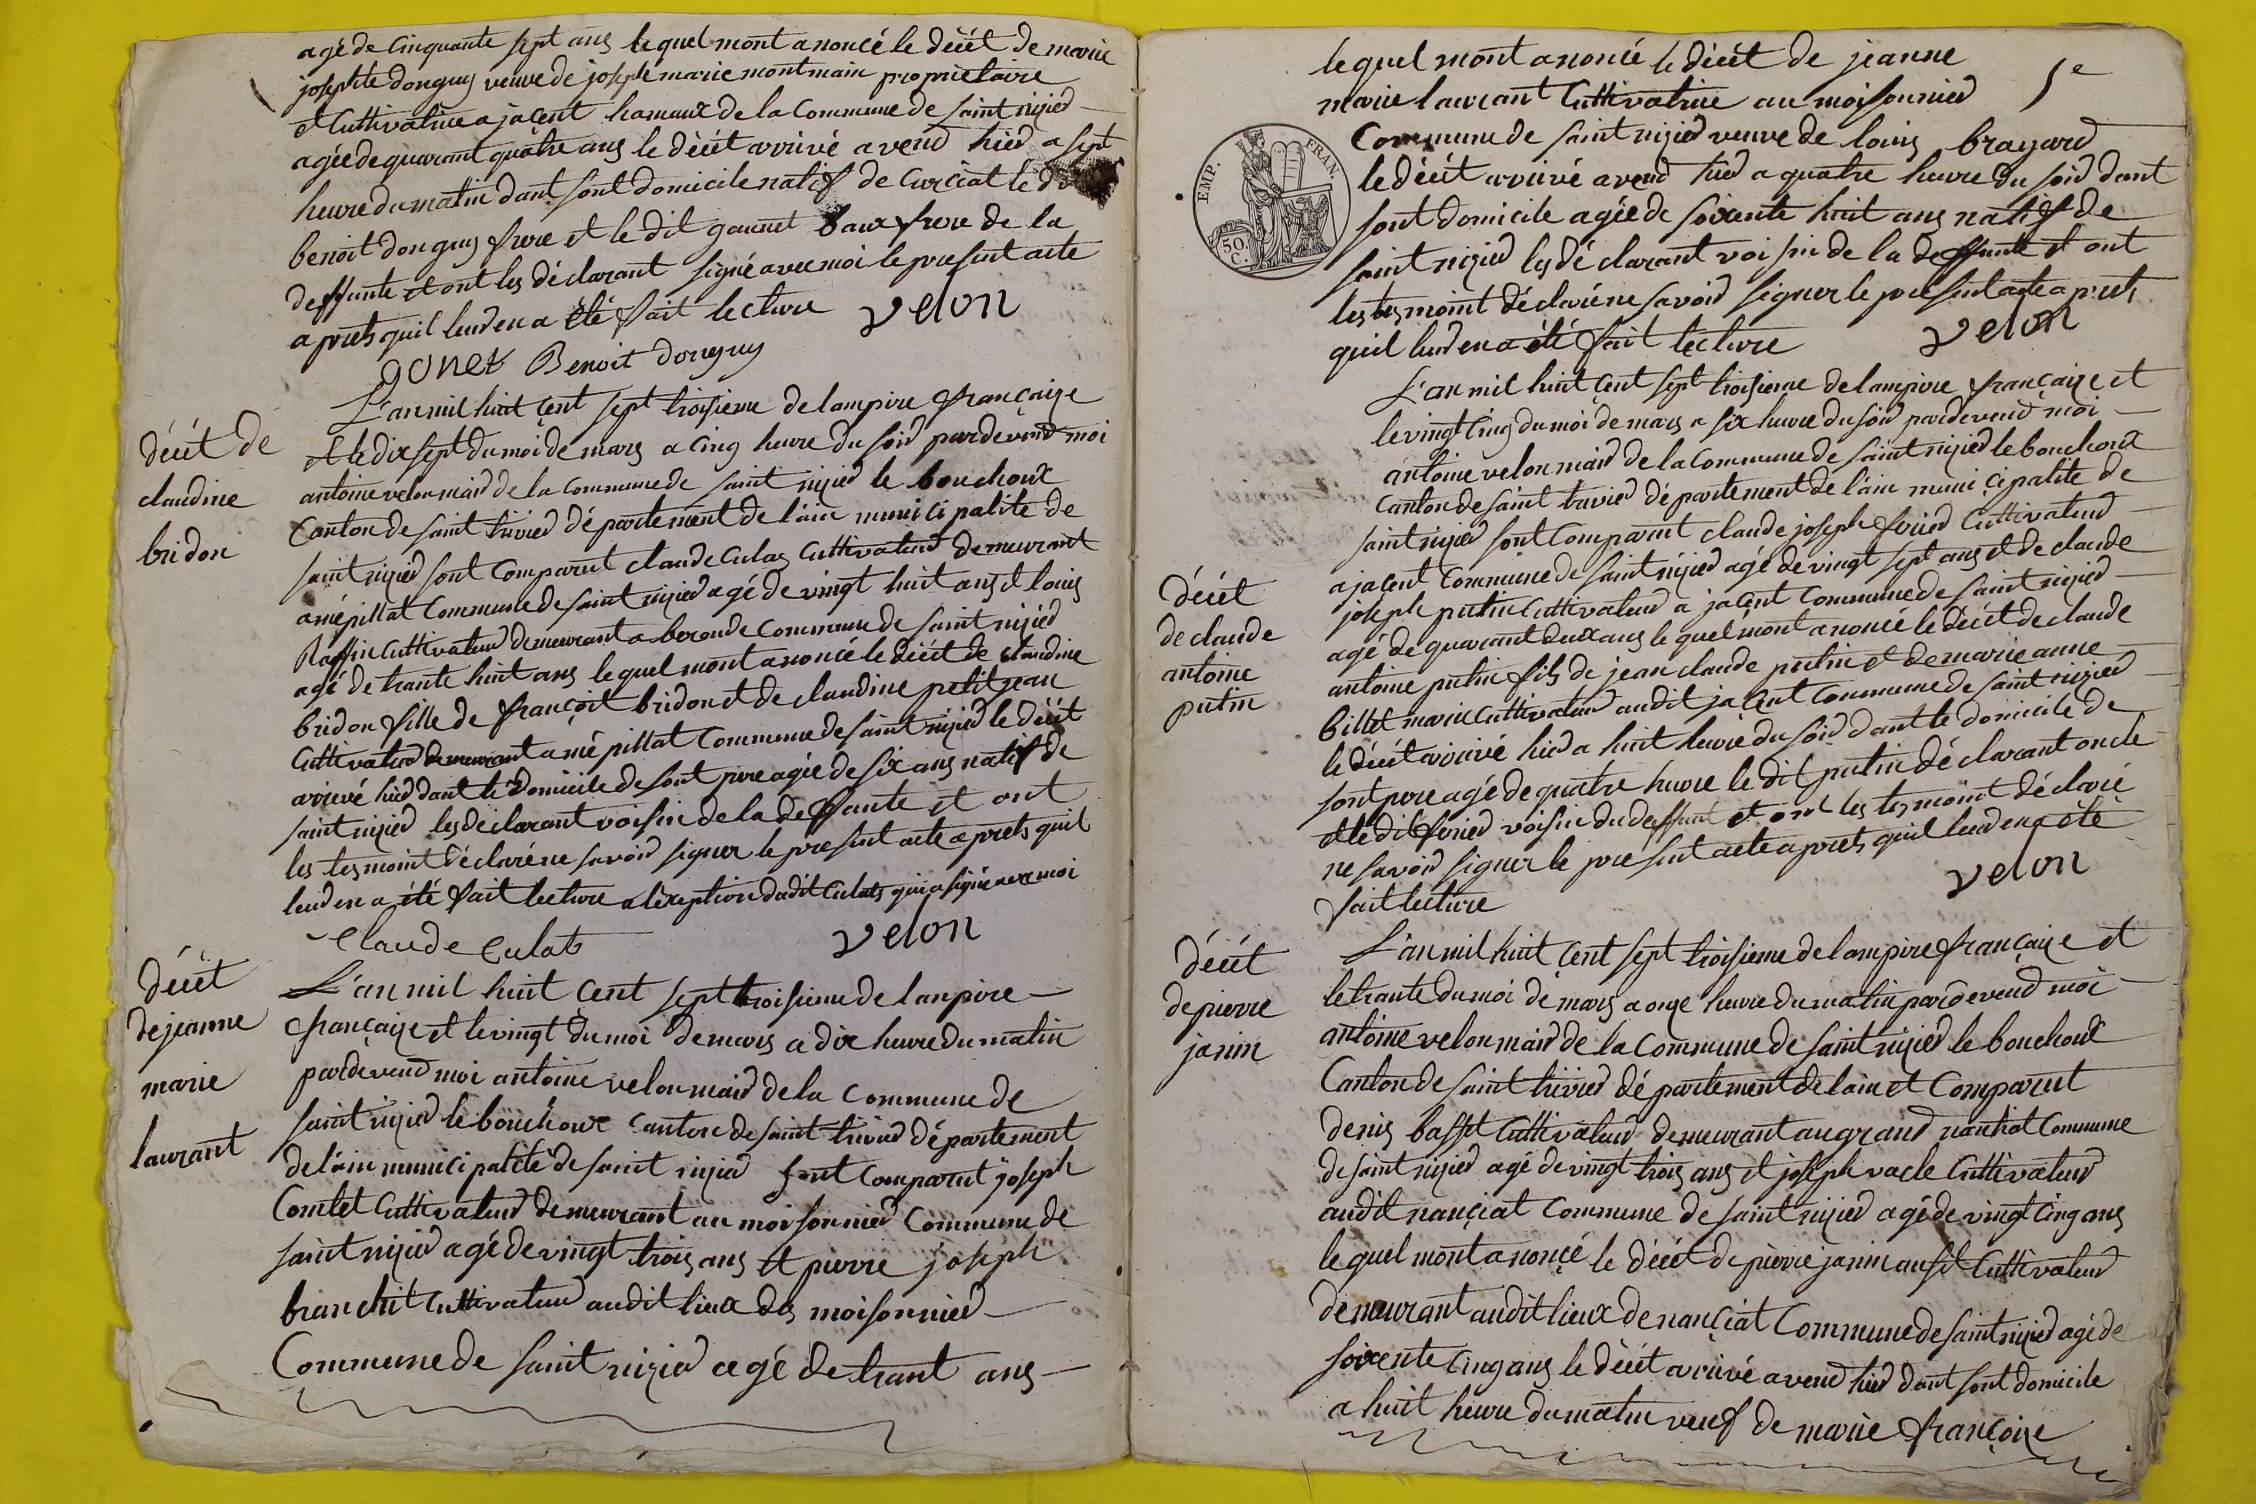 agé de Cinquante sept ans lequel mont anoncé le décét de marie
josephte donguy veuve de joseph marie montmain propriétaire
et Cultivatrice a jaçent hamaux de la Commune de saint nizied
agée de quarant quatre ans le décét arrivé avend hied a sept
heure du matin dant sont domicile natif de Curciat le dit
benoit donguy frere et le dit gounet baux frere de la
deffunte et ont les déclarant signé avec moi le present acte
aprets quil leud en a été fait lecture velon
gonet Benoit donguy
décét de
claudine
bridon
L'an mil huit çent sept troisieme de lampire françaize
et le dix sept du moi de mars a cinq heure du soid pardevend moi
antoine velon maid de la Commune de saint nizied le bouchoux
Canton de saint trivied département de l'ain municipalité de
saint nizied sont Comparut claude Culas Cultivateud demeurant
a mépillat Commune de saint nizied agé de vingt huit ans et louis
Raffin Cultivateud demeurant a beronde Commune de saint nizied
agé de trante huit ans lequel mont anoncé le décét de claudine
bridon fille de françoit bridon et de claudine petit jean
Cultivateud demeurant a mépillat Commune de saint nizied le décét
arrivé hied dant le domicile de sont pere agée de six ans natif de
saint nizied les déclarant voisin de la deffunte et ont
les tesmoint déclaré ne savoid signer le present acte aprets quil
leud en a été fait lecture a lexeption dudit Culats qui a signé avec moi
Claude Culat velon
décét
de jeanne
marie
laurant
L'an mil huit çent sept troisieme de lanpire
françaize et le vingt du moi de mars a dix heure du matin
pardevend moi antoine velon maid de la Commune de
saint nizied le bouchoux Canton de saint trivied département
de l'ain municipalité de saint nizied sont Comparut joseph
Comtet Cultivateud demeurant au moisonnied Commune de
saint nizied agé de vingt trois ans et pierre joseph
branchit Cultivateud audit lieux des moisonnied
Commune de saint nizied agé de trant ans
lequel mont anoncé le décét de jeanne
marie laurant Cultivatrice au moisonnied 5e
Commune de saint nizied veuve de louis brayard
le décét arrivé avend hied a quatre heure du soid dant
sont domicile agée de soixente huit ans natif de
saint nizied les déclarant voisin de la deffunte et ont
les tesmoint déclaré ne savoid signer le present acte aprets
quil leud en a été fait lecture velon
EMP. FRAN.
50 C.
décét
de claude
antoine
putin
L'an mil huit çent sept troisieme de lampire françaize et
le vingt cinq du moi de mars a six heure du soid pardevend moi
antoine velon maid de la Commune de saint nizied le bouchoux
Canton de saint travied département de l'ain municipalité de
saint nizied sont Comparut claude joseph feried Cultivateud
a jaçent Commune de saint nizied agé de vingt sept ans et de claude
joseph putin Cultivateud a jaçent Commune de saint nizied
agé de quarant deux ans lequel mont anoncé le décét de claude
antoine putin fils de jean claude putin et de marie anne
billet marie Cultivateud audit jaçent Commune de saint nizied
le décét arrivé hied a huit heure du soid dant le domicile de
sont pere agé de quatre heure le dit putin déclarant oncle
et le dit feried voisin du deffunt et ont les tesmoint déclaré
ne savoid signer le present acte aprets quil leud en a été
fait lecture velon
décét
de pierre
janin
L'an mil huit çent sept troisieme de lampire françaize et
le trante du moi de mars a onze heure du matin pardevend moi
antoine velon maid de la Commune de saint nizied le bouchoux
Canton de saint trivied département de lain et Comparut
denis basset Cultivateud demeurant au grand nantiat Commune
de saint nizied agé de vingt trois ans et joseph vacle Cultivateud
audit nançiat Commune de saint nizied agé de vingt cinq ans
lequel mont anonçé le décét de pierre janin ausit Cultivateud
demeurant audit lieux de nançiat Commune de saint nizied agé de
soixente cinq ans le décét arrivé avend hied dant sont domicile
a huit heure du matin veuf de marie françoize